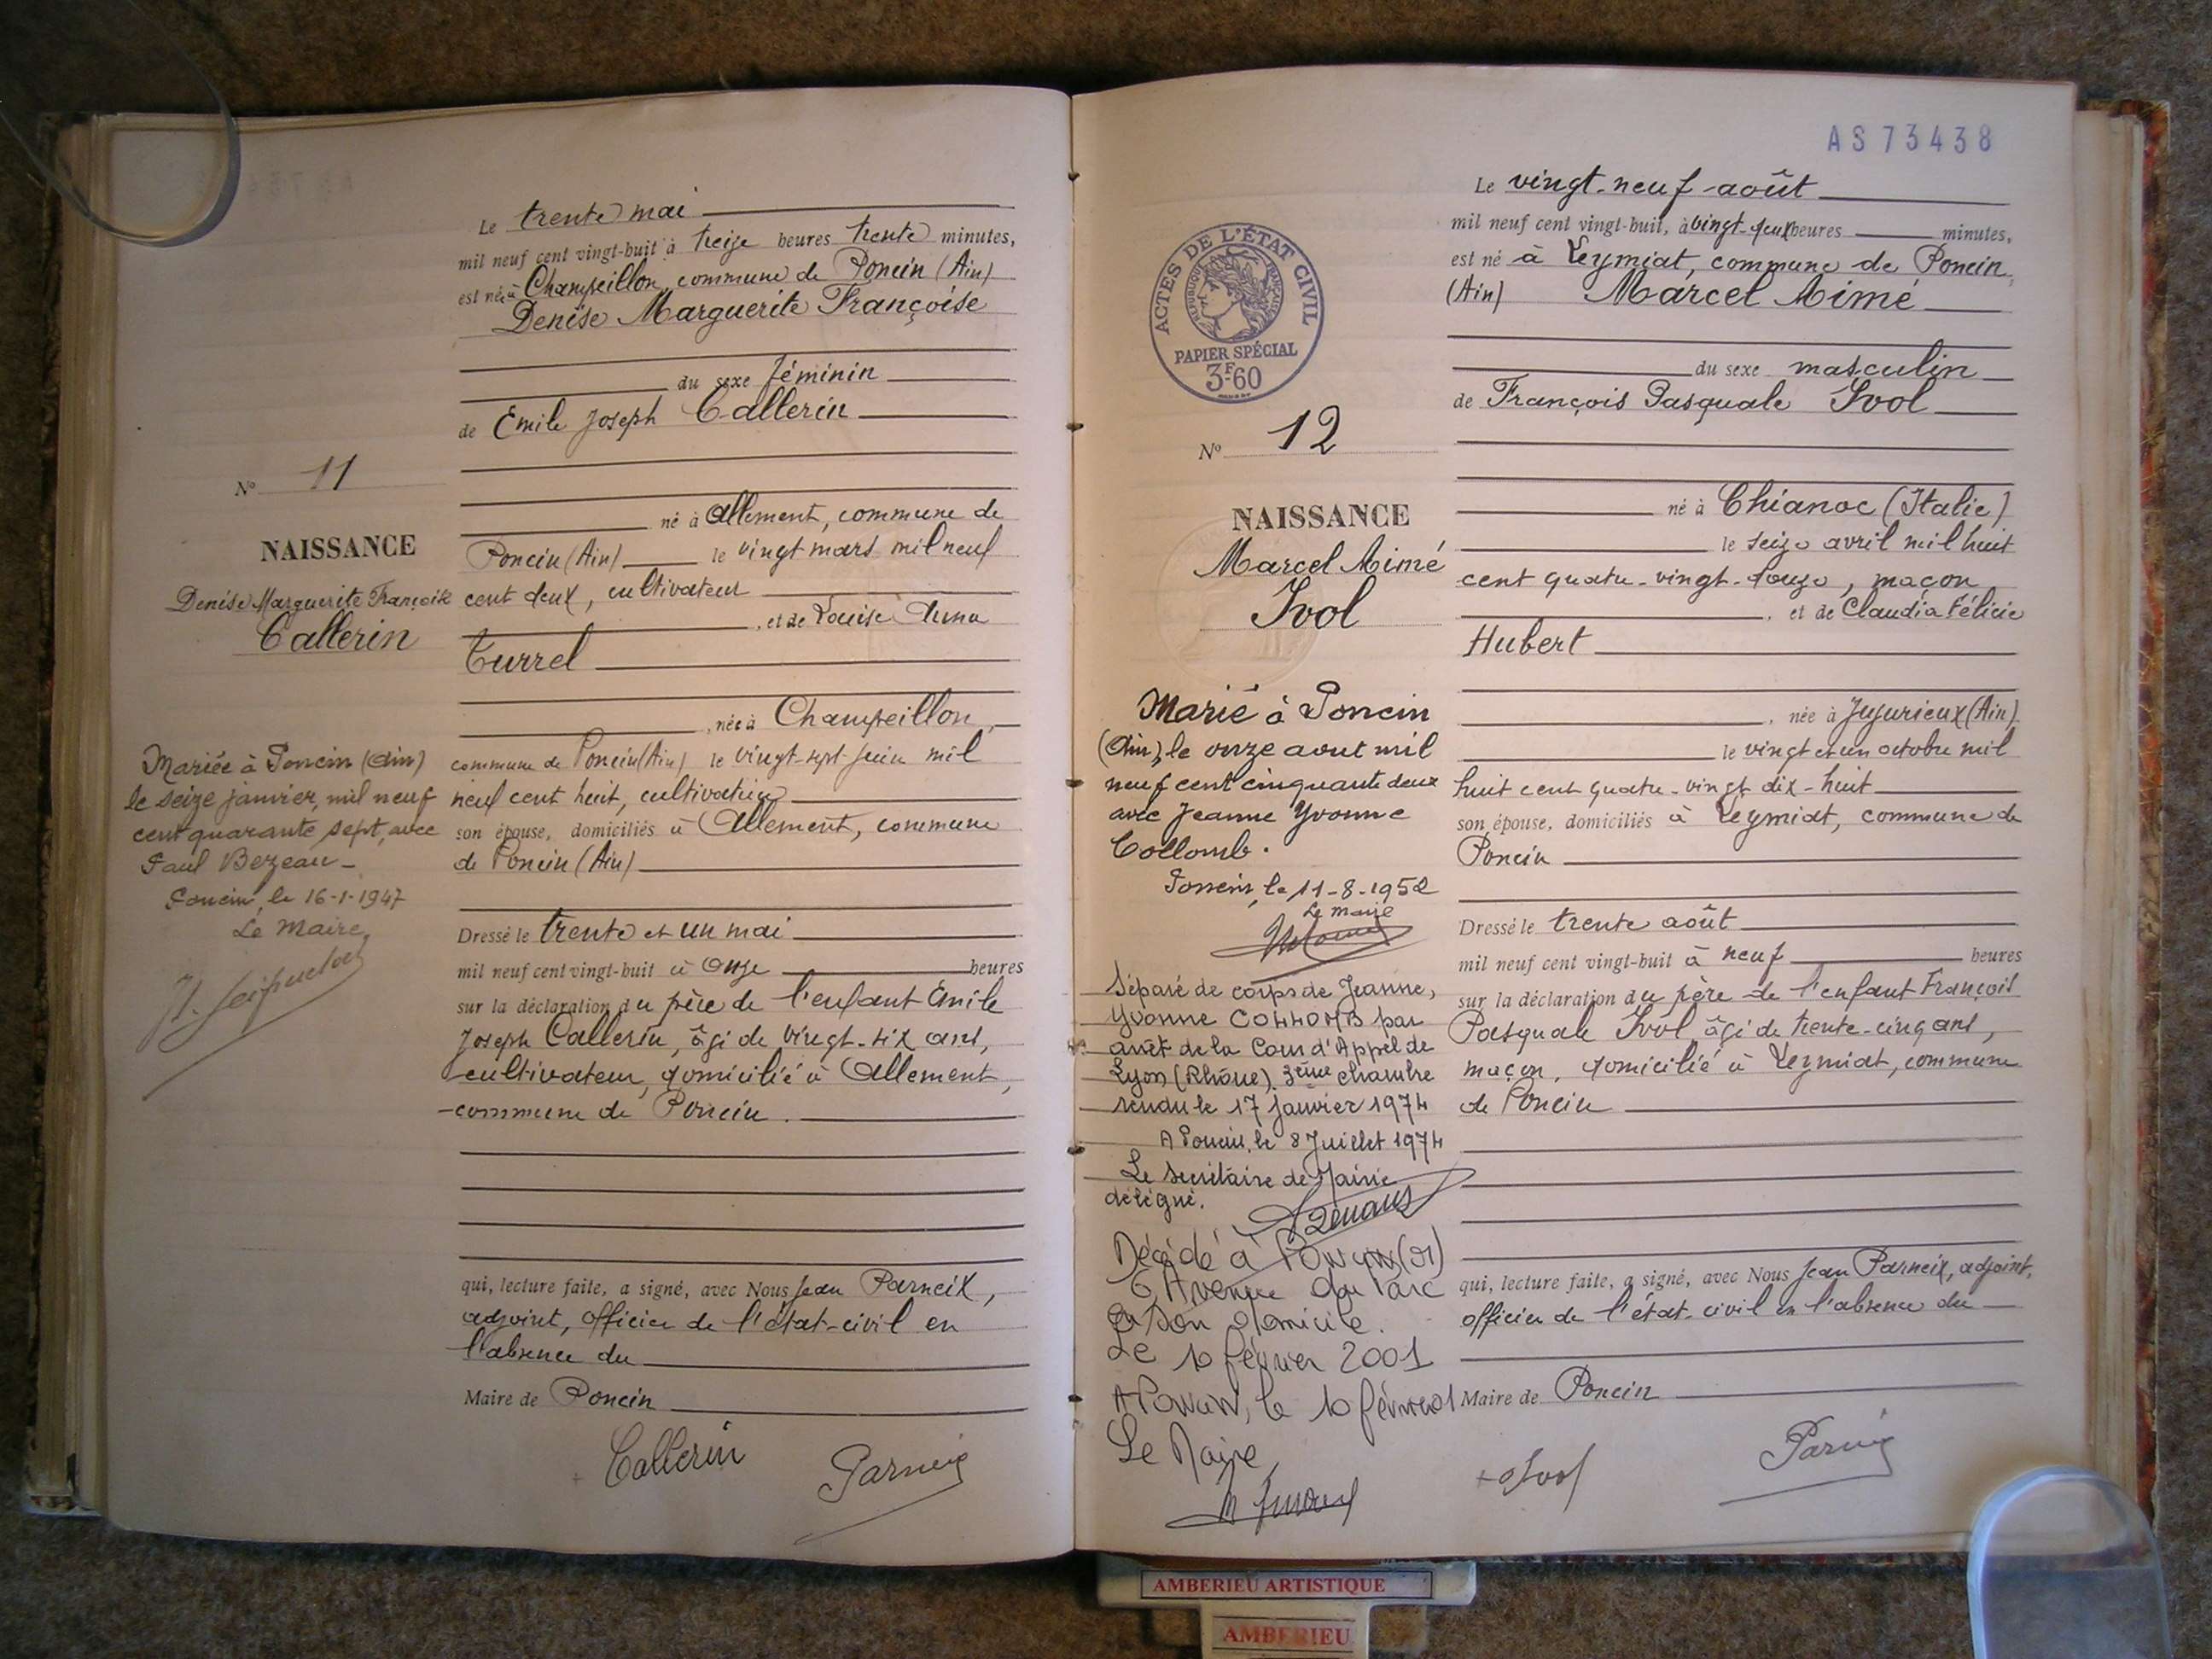 Le trente mai
mil neuf cent vingt-huit à treize heures trente minutes,
est née à Champeillon, commune de Poncin (Ain)
Denise Marguerite Françoise
du sexe féminin
de Emile Joseph Callerin
né à Allement, commune de
Poncin (Ain) le vingt mars mil neuf
cent deux, cultivateur
, et de Louise Anna
Turrel
, née à Champeillon,
commune de Poncin (Ain) le vingt-sept juin mil
neuf cent huit, cultivatrice
son épouse, domiciliés à Allement, commune
de Poncin (Ain)
Dressé le trente et un mai
mil neuf cent vingt-huit à onze heures
sur la déclaration du père de l'enfant Emile
Joseph Callerin, âgé de vingt-six ans,
cultivateur, domicilié à Allement,
commune de Poncin.
qui, lecture faite, a signé, avec Nous Jean Parneix,
adjoint, officier de l'état-civil en
l'absence du
Maire de Poncin
Callerin
Parneix
N° 11
NAISSANCE
Denise Marguerite Françoise
Callerin
Mariée à Poncin (Ain)
le seize janvier, mil neuf
cent quarante sept, avec
Paul Bezeau -
Poncin, le 16-1-1947
Le Maire,
AS 73438
ACTES DE L'ÉTAT CIVIL
RÉPUBLIQUE FRANÇAISE
PAPIER SPÉCIAL
3F60
N° 12
NAISSANCE
Marcel Aimé
Ivol
Marié à Poncin
(Ain), le onze aout mil
neuf cent cinquante deux
avec Jeanne Yvonne
Collomb.
Poncin, le 11-8-1952
Le maire
Séparé de corps de Jeanne,
Yvonne COLLOMB par
arrêt de la Cour d'Appel de
Lyon (Rhône). 3ème chambre
rendu le 17 Janvier 1974
A Poncin, le 8 Juillet 1974
Le secrétaire de Mairie
délégué.
Décédé à Poncin (01)
6 Avenue du Parc
en son domicile.
Le 10 février 2001
A Poncin, le 10 février 01
Le Maire,
Le vingt-neuf août
mil neuf cent vingt-huit, à vingt-deux heures minutes,
est né à Leymiat, commune de Poncin
(Ain) Marcel Aimé
du sexe masculin
de François Pasquale Ivol
né à Chianoc (Italie)
le seize avril mil huit
cent quatre-vingt-douze, maçon
, et de Claudia Félicie
Hubert
, née à Jujurieux (Ain)
le vingt et un octobre mil
huit cent quatre-vingt dix-huit
son épouse, domiciliés à Leymiat, commune de
Poncin
Dressé le trente août
mil neuf cent vingt-huit à neuf heures
sur la déclaration du père de l'enfant François
Pasquale Ivol, âgé de trente-cinq ans,
maçon, domicilié à Leymiat, commune
de Poncin
qui, lecture faite, a signé, avec Nous Jean Parneix, adjoint,
officier de l'état-civil en l'absence du
Maire de Poncin
Ivol
Parneix
AMBERIEU ARTISTIQUE
AMBERIEU